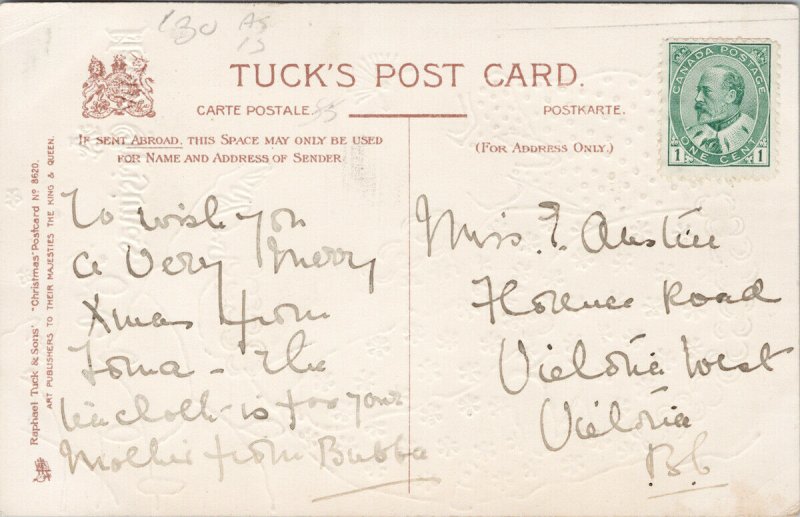 130 AS
15
TUCK'S POST CARD.
CARTE POSTALE. 85
POSTKARTE.
IF SENT ABROAD, THIS SPACE MAY ONLY BE USED
FOR NAME AND ADDRESS OF SENDER
(FOR ADDRESS ONLY.)
CANADA POSTAGE
1 ONE CENT 1
Raphael Tuck & Sons' "Christmas" Postcard No 8620.
ART PUBLISHERS TO THEIR MAJESTIES THE KING & QUEEN.
To wish you
a Very Merry
Xmas from
Loma - The
teacloth is for your
Mother from Bubba
Miss. E. Austin
Florence Road
Victoria West
Victoria
B.C